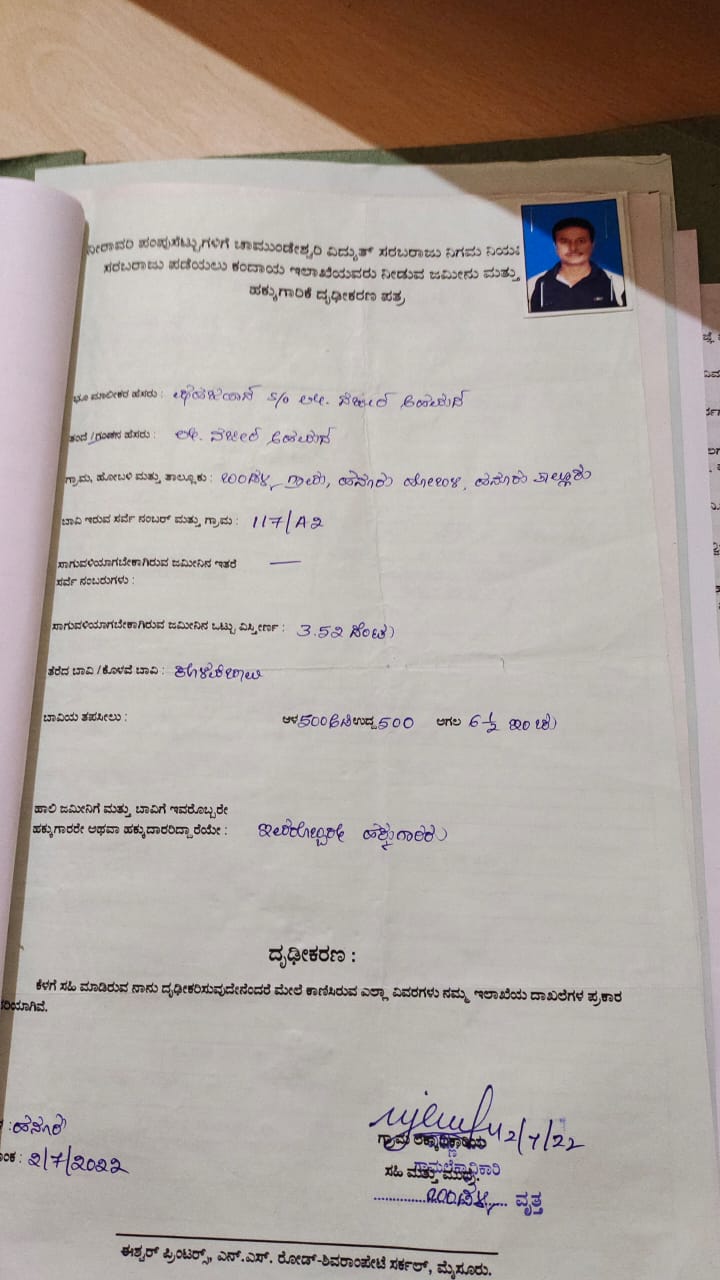 ನೀರಾವರಿ ಪಂಪುಸೆಟ್ಟುಗಳಿಗೆ ಚಾಮುಂಡೇಶ್ವರಿ ವಿದ್ಯುತ್ ಸರಬರಾಜು ನಿಗಮ
ಸರಬರಾಜು ಪಡೆಯಲು ಕಂದಾಯ ಇಲಾಖೆಯವರು ನೀಡುವ ಜಮೀನು ಮತ್ತು
ಹಕ್ಕುಗಾರಿಕೆ ದೃಢೀಕರಣ ಪತ್ರ
ಭೂ ಮಾಲೀಕರ ಹೆಸರು : S/o ಲೇ.
ತಂದೆ / ಗಂಡನ ಹೆಸರು : ಲೇ.
ಗ್ರಾಮ, ಹೋಬಳಿ ಮತ್ತು ತಾಲ್ಲೂಕು : ಗ್ರಾಮ, ಹನೂರು ಹೋಬಳಿ, ಹನೂರು ತಾಲ್ಲೂಕು
ಬಾವಿ ಇರುವ ಸರ್ವೆ ನಂಬರ್ ಮತ್ತು ಗ್ರಾಮ : 117/A2
ಸಾಗುವಳಿಯಾಗಬೇಕಾಗಿರುವ ಜಮೀನಿನ ಇತರೆ —
ಸರ್ವೆ ನಂಬರುಗಳು :
ಸಾಗುವಳಿಯಾಗಬೇಕಾಗಿರುವ ಜಮೀನಿನ ಒಟ್ಟು ವಿಸ್ತೀರ್ಣ : 3.52 ಸೆಂಟು
ತೆರೆದ ಬಾವಿ / ಕೊಳವೆ ಬಾವಿ : ಕೊಳವೆಬಾವಿ
ಬಾವಿಯ ತಪಸೀಲು : ಆಳ 500 ಅಡಿ ಉದ್ದ 500 ಅಗಲ 6 ½ ಇಂಚು
ಹಾಲಿ ಜಮೀನಿಗೆ ಮತ್ತು ಬಾವಿಗೆ ಇವರೊಬ್ಬರೇ
ಹಕ್ಕುಗಾರರೇ ಅಥವಾ ಹಕ್ಕುದಾರರಿದ್ದಾರೆಯೇ : ಇವರೊಬ್ಬರೇ ಹಕ್ಕುಗಾರರು
ದೃಢೀಕರಣ :
ಕೆಳಗೆ ಸಹಿ ಮಾಡಿರುವ ನಾನು ದೃಢೀಕರಿಸುವುದೇನೆಂದರೆ ಮೇಲೆ ಕಾಣಿಸಿರುವ ಎಲ್ಲಾ ವಿವರಗಳು ನಮ್ಮ ಇಲಾಖೆಯ ದಾಖಲೆಗಳ ಪ್ರಕಾರ
ರಿಯಾಗಿವೆ.
2/7/22
ಗ್ರಾಮ
: ಹನೂರು
ಗ್ರಾಮಲೆಕ್ಕಾಧಿಕಾರಿ
ಸಹಿ ಮತ್ತು ಮುದ್ರೆ
ಂಕ : 2/7/2022
ವೃತ್ತ
ಈಶ್ವರ್ ಪ್ರಿಂಟರ್ಸ್, ಎನ್.ಎಸ್. ರೋಡ್-ಶಿವರಾಂಪೇಟೆ ಸರ್ಕಲ್, ಮೈಸೂರು.